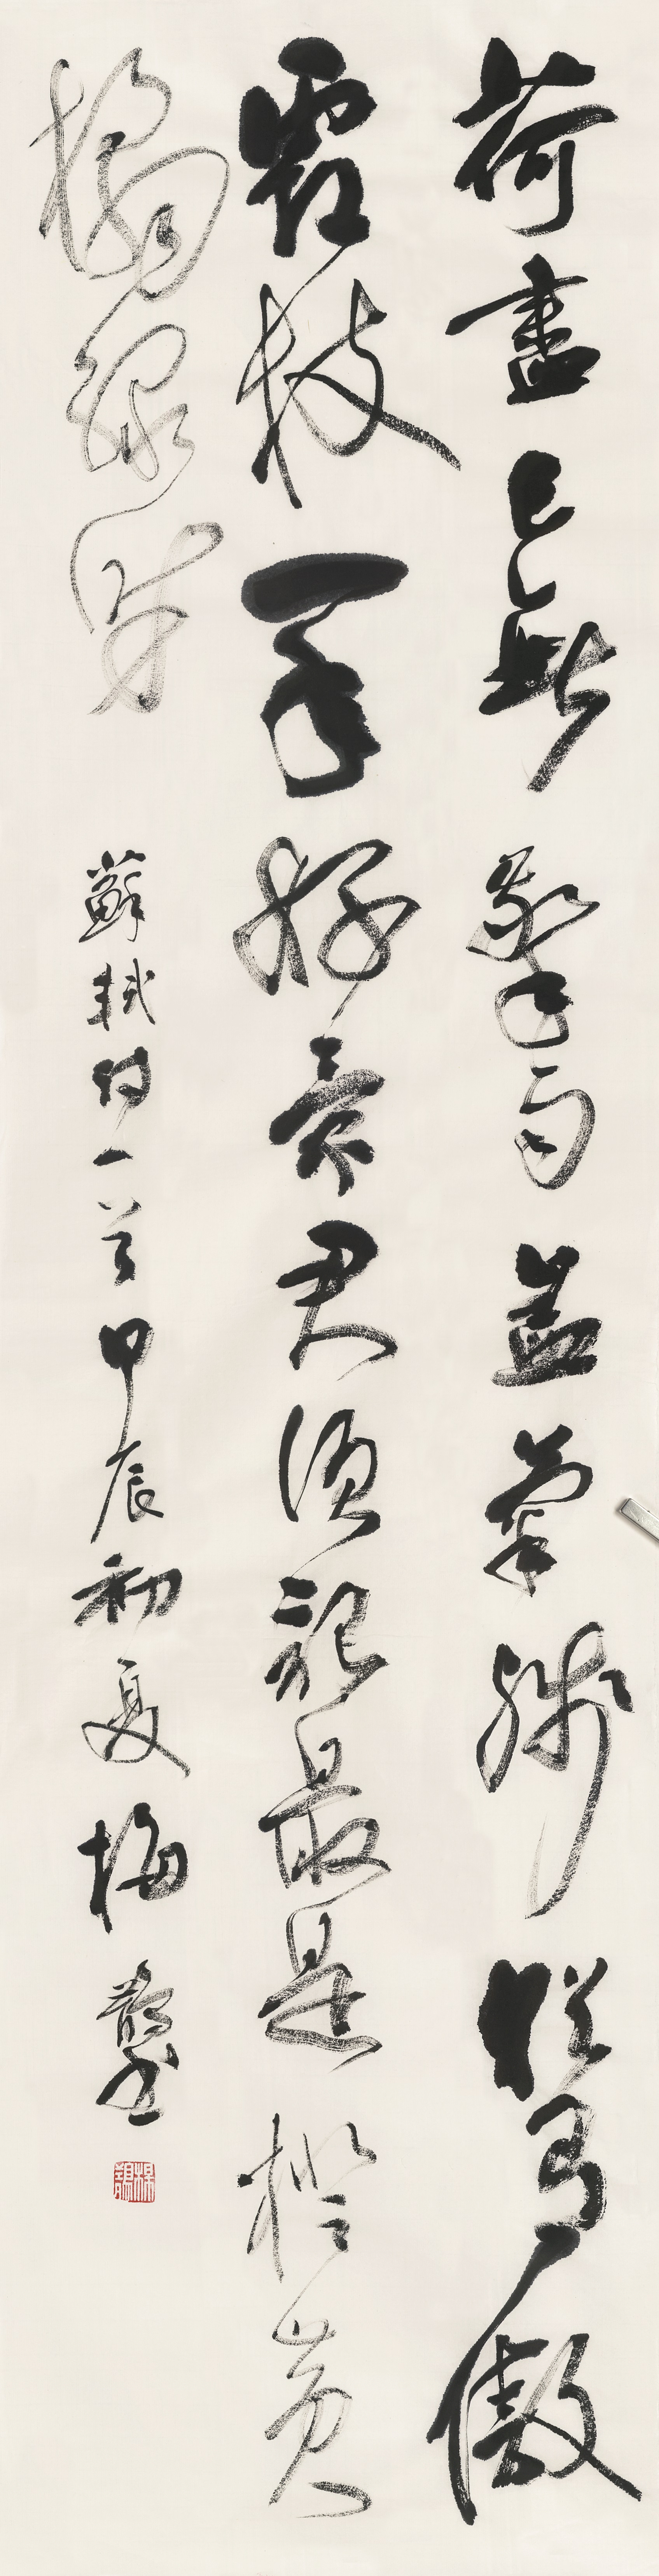 荷盡已無擎雨蓋菊殘猶有傲
霜枝一年好景君須記最是橙黃
橘綠時
蘇軾詩一首甲辰初夏梅